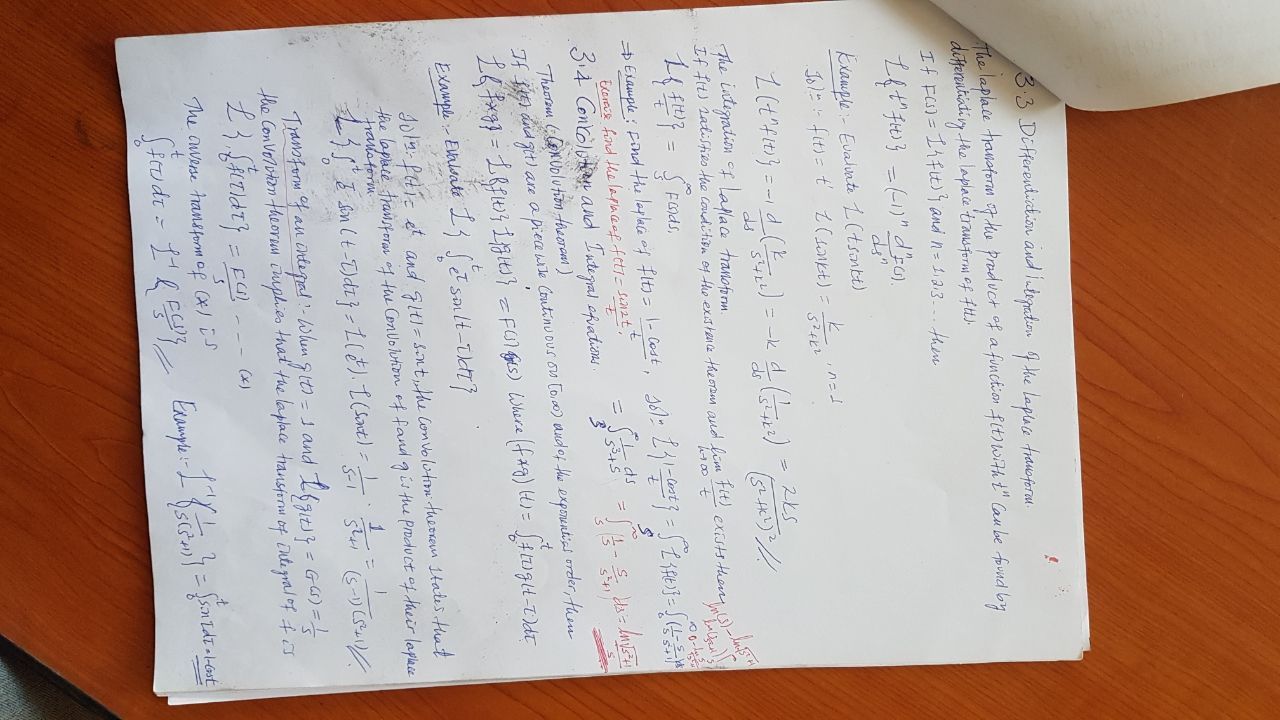 3.3 Differentiation and integration of the laplace transform.
The laplace transform of the product of a function f(t) with tⁿ can be found by
differentiating the laplace transform of f(t).
If F(s) = L{f(t)} and n = 1,2,3 ... then
L{tⁿ f(t)} = (-1)ⁿ dⁿ/dsⁿ F(s).
Example:- Evaluate L(t sin kt)
Solⁿ:- f(t) = t L(sin kt) = k/(s²+k²), n=1
L(tⁿ f(t)) = -1 d/ds (k/(s²+k²)) = -k d/ds (1/(s²+k²)) = 2ks/(s²+k²)² //
The integration of laplace transform.
If f(t) satisfies the condition of the existence theorem and lim f(t)/t exists then
L{f(t)/t} = ∫ₛ^∞ F(s)ds,
⇒ Example: Find the laplace of f(t) = (1-cost)/t, Solⁿ: L{(1-cost)/t} = ∫ₛ^∞ L{f(t)} = ∫ (1/s - s/(s²+1)) ds
Exercise find the laplace of f(t) = sin2t/t,
= ∫ₛ^∞ (1/s - s/(s²+1)) ds = ln √(s²+1)/s
3.4 Convolution and Integral equations.
Theorem (convolution theorem)
If f(t) and g(t) are a piecewise continuous on [0,∞) and of the exponential order, then
L{f*g} = L{f(t)} L{g(t)} = F(s)G(s) where (f*g)(t) = ∫₀ᵗ f(τ)g(t-τ)dτ.
Example:- Evaluate L{∫₀ᵗ e^τ sin(t-τ)dτ}
Solⁿ:- f(t) = eᵗ and g(t) = sint, the convolution theorem states that
the laplace transform of the convolution of f and g is the product of their laplace
transform.
L{∫₀ᵗ e^τ sin(t-τ)dτ} = L(eᵗ). L(sint) = 1/(s-1) . 1/(s²+1) = 1/((s-1)(s²+1)) //
Transform of an integral:- When g(t) = 1 and L{g(t)} = G(s) = 1/s
the convolution theorem implies that the laplace transform of integral of f is
L{∫₀ᵗ f(τ)dτ} = F(s)/s .... (*)
The inverse transform of (*) is
∫₀ᵗ f(τ)dτ = L⁻¹{F(s)/s} // Example:- L⁻¹{1/(s(s²+1))} = ∫₀ᵗ sinτdτ = 1-cost